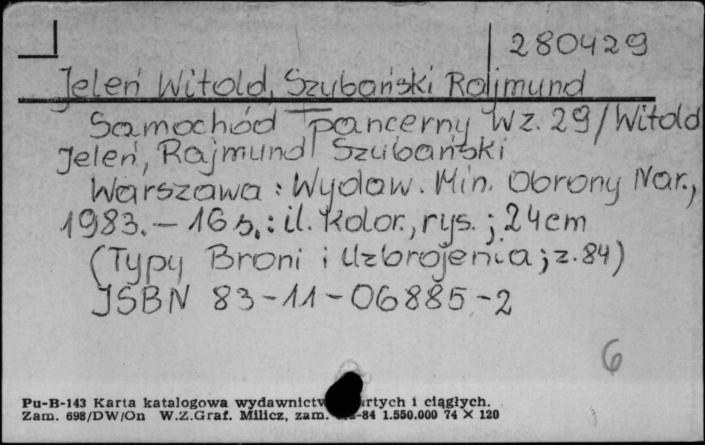 280429
Jeleń Witold, Szubański Rajmund
Samochód pancerny Wz. 29 / Witold
Jeleń, Rajmund Szubański
Warszawa : Wydaw. Min. Obrony Nar.,
1983. – 16 s. : il. kolor., rys. ; 24cm
(Typy Broni i Uzbrojenia ; z. 84)
ISBN 83-11-06885-2
6
Pu-B-143 Karta katalogowa wydawnictw rtych i ciągłych.
Zam. 698/DW/On W.Z.Graf. Milicz, zam. -84 1.550.000 74 X 120